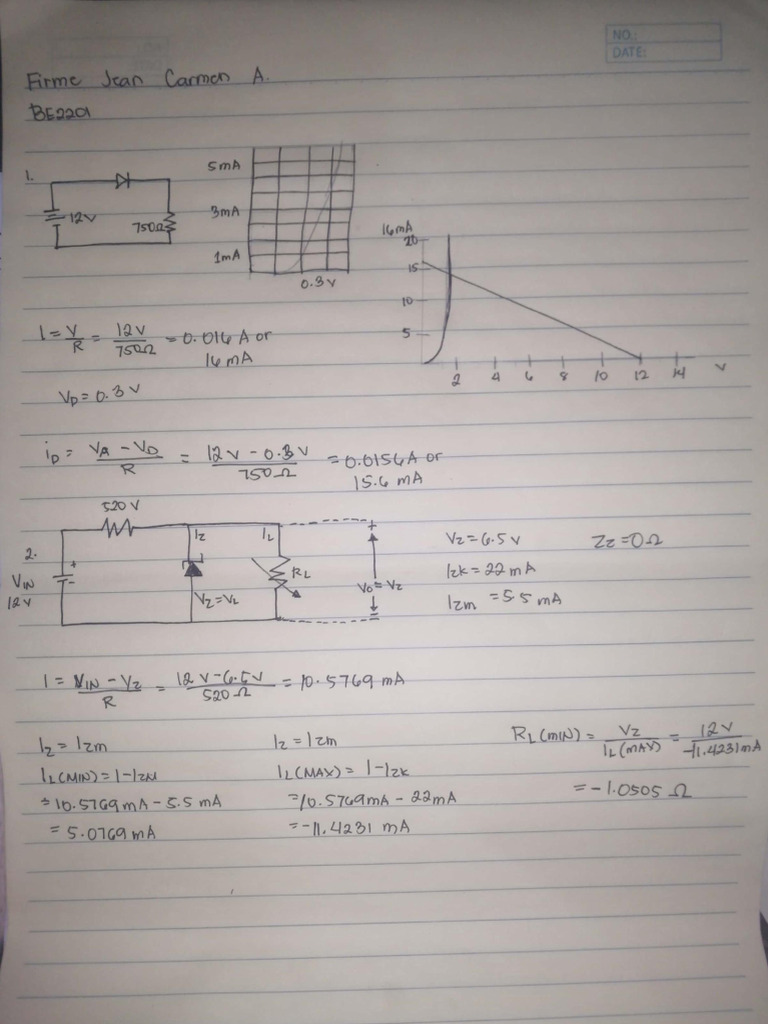 NO.:
DATE:
Firme Jean Carmen A.
BE2201
1.
12V
750Ω
5mA
3mA
1mA
0.3V
16mA
20
15
10
5
2 4 6 8 10 12 14 V
I = V/R = 12V/750Ω = 0.016 A or
16 mA
VD = 0.3 V
iD = VA - VD/R = 12V - 0.3V/750Ω = 0.0156A or
15.6 mA
2.
520 V
VIN
12V
+
-
IZ
IL
VZ=VL
RL
+
V0=VZ
VZ = 6.5 V
ZZ = 0Ω
IZK = 22 mA
IZM = 5.5 mA
I = VIN - VZ/R = 12V-6.5V/520Ω = 10.5769 mA
IZ = IZM
IL(MIN) = I-IZM
= 10.5769 mA - 5.5 mA
= 5.0769 mA
IZ = IZM
IL(MAX) = I-IZK
= 10.5769mA - 22mA
= -11.4231 mA
RL(MIN) = VZ/IL(MAX) = 12V/-11.4231mA
= -1.0505 Ω